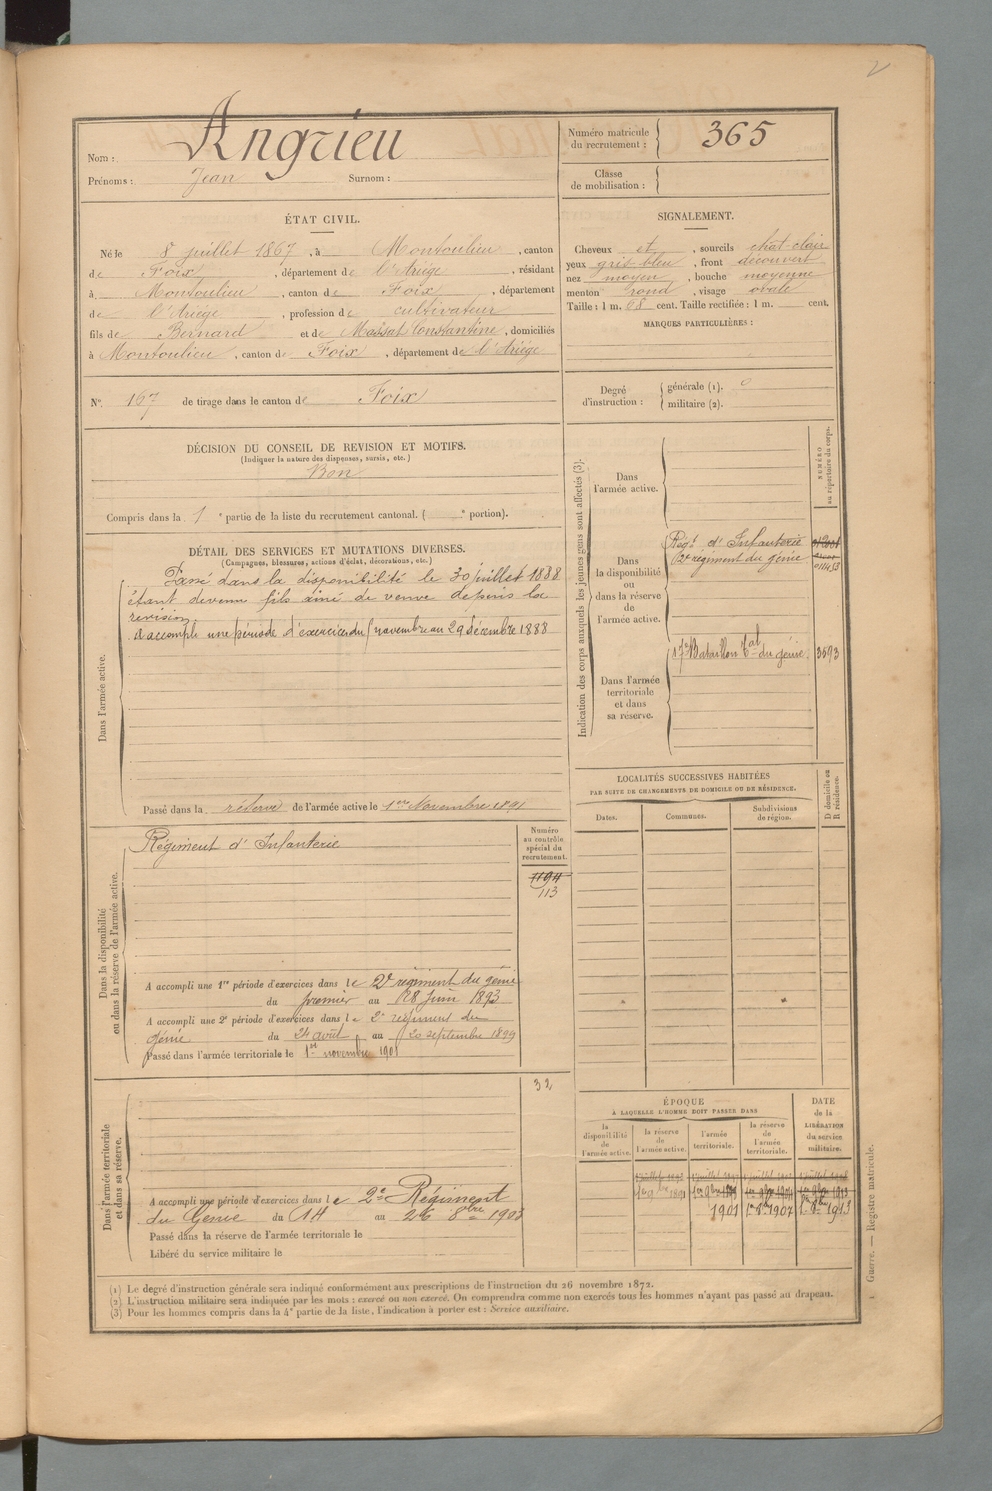 2
Nom : Angrieu
Prénoms : Jean Surnom :
Numéro matricule du recrutement : 365
Classe de mobilisation :
ÉTAT CIVIL.
Né le 8 juillet 1867, à Montoulieu, canton
de Foix, département de l'Ariège, résidant
à Montoulieu, canton de Foix, département
de l'Ariège, profession de cultivateur
fils de Bernard et de Massat Constantine, domiciliés
à Montoulieu, canton de Foix, département de l'Ariège
SIGNALEMENT.
Cheveux et, sourcils chat-clair
yeux gris bleu, front découvert
nez moyen, bouche moyenne
menton rond, visage ovale
Taille : 1 m. 68 cent. Taille rectifiée : 1 m. cent.
MARQUES PARTICULIÈRES :
N° 167 de tirage dans le canton de Foix
Degré d'instruction : générale (1). 0
militaire (2).
DÉCISION DU CONSEIL DE REVISION ET MOTIFS.
(Indiquer la nature des dispenses, sursis, etc.)
Bon
Compris dans la 1e partie de la liste du recrutement cantonal. ( e portion).
DÉTAIL DES SERVICES ET MUTATIONS DIVERSES.
(Campagnes, blessures, actions d'éclat, décorations, etc.)
Dans l'armée active.
Passé dans la disponibilité le 30 juillet 1888
étant devenu fils aîné de veuve depuis la
revision
A accompli une période d'exercices du novembre au 29 décembre 1888
Passé dans la réserve de l'armée active le 1er Novembre 1891
Indication des corps auxquels les jeunes gens sont affectés (3).
NUMÉRO au répertoire du corps.
Dans l'armée active.
Dans la disponibilité ou dans la réserve de l'armée active.
Régt d'Infanterie
2e régiment du génie 011453
Dans l'armée territoriale et dans sa réserve.
17e Bataillon tal du génie 3593
LOCALITÉS SUCCESSIVES HABITÉES
PAR SUITE DE CHANGEMENTS DE DOMICILE OU DE RÉSIDENCE.
Dates. Communes. Subdivisions de région. D domicile ou R résidence.
Dans la disponibilité ou dans la réserve de l'armée active.
Régiment d'Infanterie
Numéro au contrôle spécial du recrutement.
1194
113
A accompli une 1re période d'exercices dans le 2e régiment du génie
du premier au 28 Juin 1893
A accompli une 2e période d'exercices dans le 2e régiment du
génie du 24 août au 20 septembre 1899
Passé dans l'armée territoriale le 1er novembre 1901
Dans l'armée territoriale et dans sa réserve.
32
A accompli une période d'exercices dans le 2e Régiment
du Génie du 14 au 26 8bre 1903
Passé dans la réserve de l'armée territoriale le
Libéré du service militaire le
ÉPOQUE
A LAQUELLE L'HOMME DOIT PASSER DANS
la disponibilité de l'armée active.
la réserve de l'armée active.
l'armée territoriale.
la réserve de l'armée territoriale.
DATE de la LIBÉRATION du service militaire.
1er 9bre 1891
1901 1er 9bre 1907 1er 8bre 1913
(1) Le degré d'instruction générale sera indiqué conformément aux prescriptions de l'instruction du 26 novembre 1872.
(2) L'instruction militaire sera indiquée par les mots : exercé ou non exercé. On comprendra comme non exercés tous les hommes n'ayant pas passé au drapeau.
(3) Pour les hommes compris dans la 4e partie de la liste, l'indication à porter est : Service auxiliaire.
Guerre. — Registre matricule.